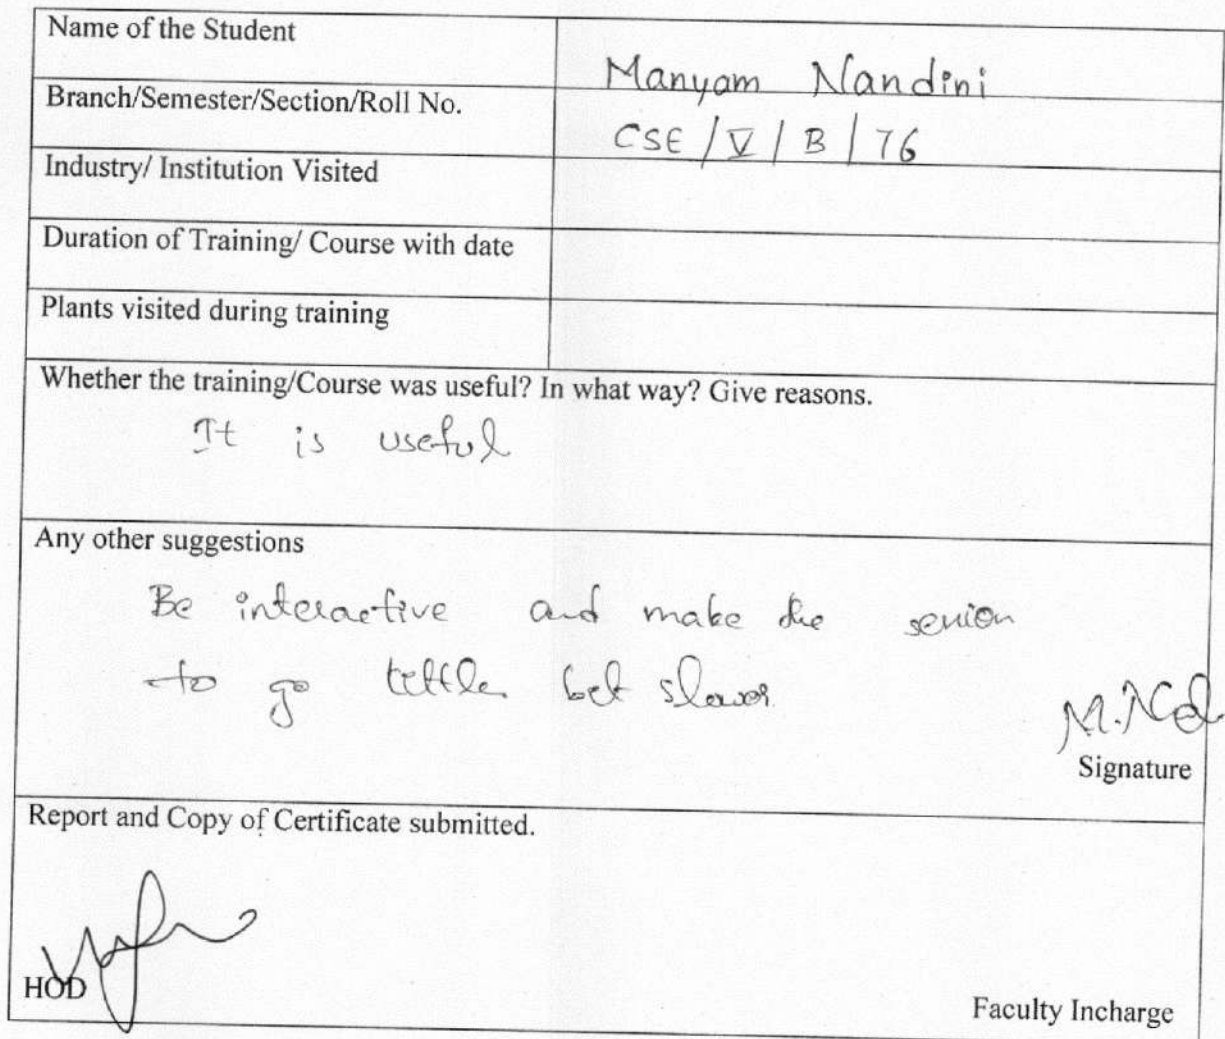 Name of the Student
Manyam Nandini
Branch/Semester/Section/Roll No.
CSE / V / B / 76
Industry/ Institution Visited
Duration of Training/ Course with date
Plants visited during training
Whether the training/Course was useful? In what way? Give reasons.
It is useful
Any other suggestions
Be interactive and make the
to go slower
Signature
Report and Copy of Certificate submitted.
HOD
Faculty Incharge